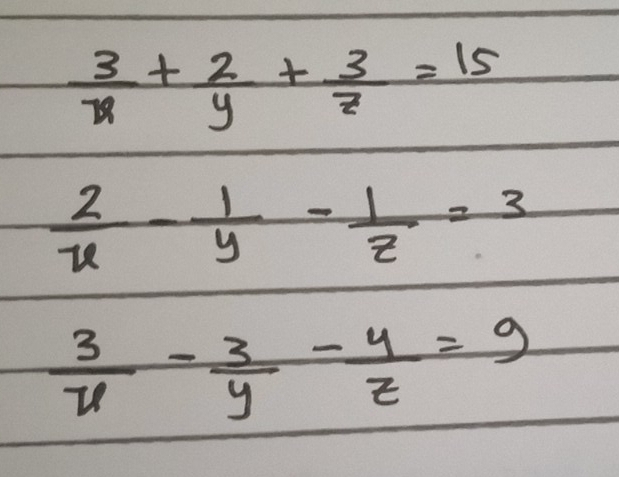 3/x + 2/y + 3/z = 15
2/x - 1/y - 1/z = 3
3/x - 3/y - 4/z = 9